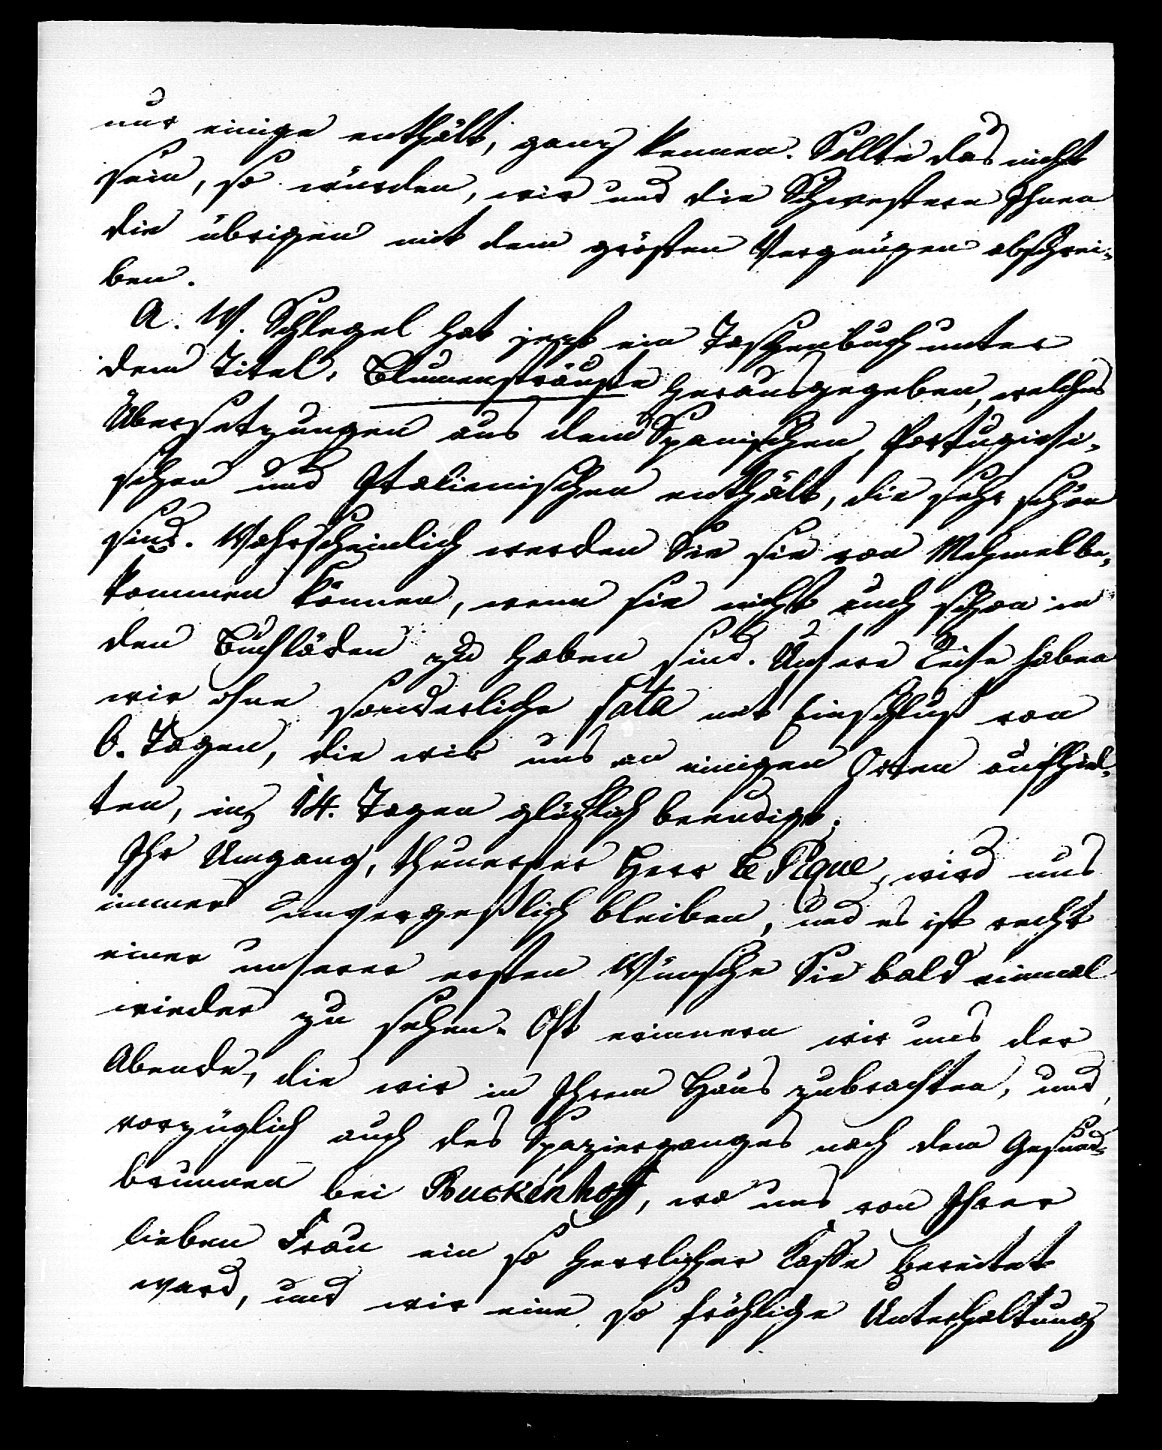 nur einige enthält, ganz kennen. Sollte das nicht
sein, so würden, wir und die Schwestern Ihnen
die übrigen mit dem grösten Vergnügen abschrei-
ben.
A. W. Schlegel hat jezt ein Taschenbuch unter
dem Titel: Blumensträuße herausgegeben, welches
Übersetzungen aus dem Spanischen, Portugiesi-
schen und Italienischen enthält, die sehr schön
sind. Wahrscheinlich werden Sie sie von Mehmel be-
kommen können, wenn sie nicht auch schon in
den Buchläden zu haben sind. Unsere Reise haben
wir ohne sonderliche fata mit Einschluß von
6. Tagen, die wir uns an einigen Orten aufhiel-
ten, in 14. Tagen glücklich beendigt.
Ihr Umgang, theuerster Herr Le Pique, wird uns
immer unvergeßlich bleiben, und es ist recht
einer unserer ersten Wünsche Sie bald einmal
wieder zu sehen. Oft erinnern wir uns der
Abende, die wir in Ihrem Haus zubrachten, und
vorzüglich auch des Spazierganges nach dem Gesund-
brunnen bei Buckenhoff, wo uns von Ihrer
lieben Frau ein so herrlicher Kaffe bereitet
ward, und wir eine so fröhliche Unterhaltung